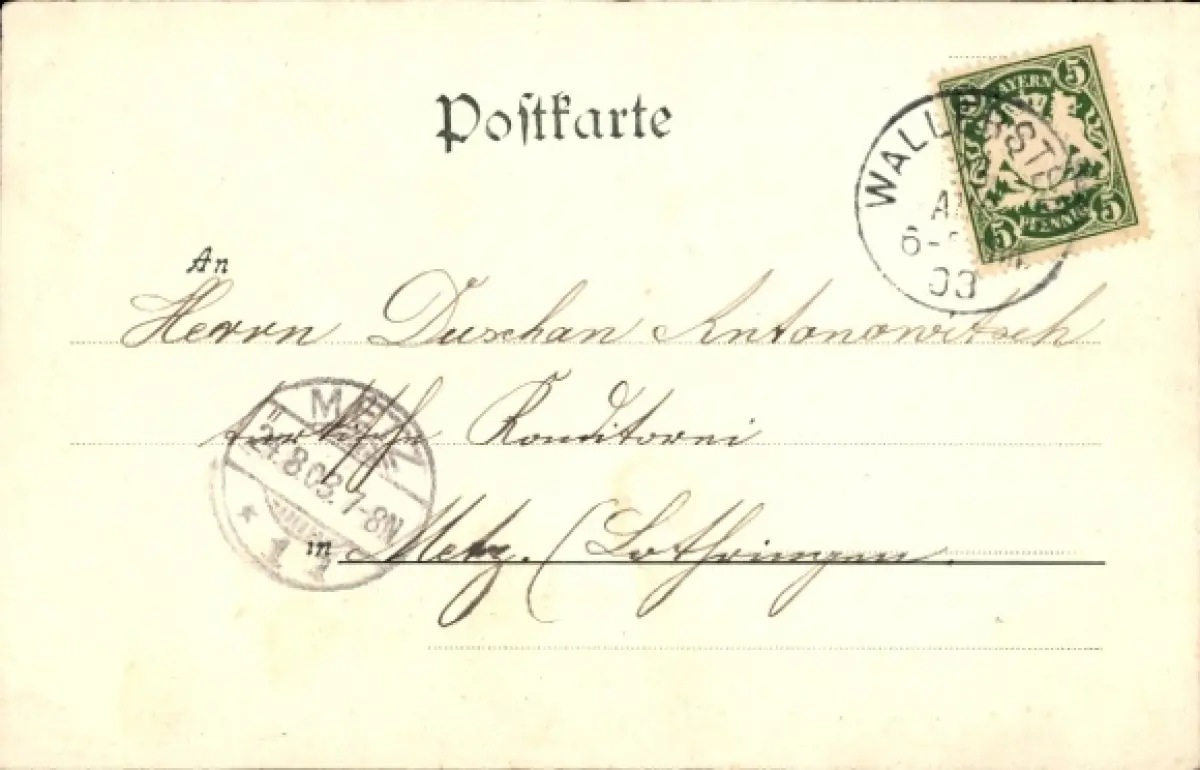 Postkarte
BAYERN 5
5 PFENNIG 5
WALLERST
6-
03
An
Herrn Duschan Antonowitsch
türkische Konditorei
24.8.03. 7-8N
* 1 1
in Metz. (Lothringen.